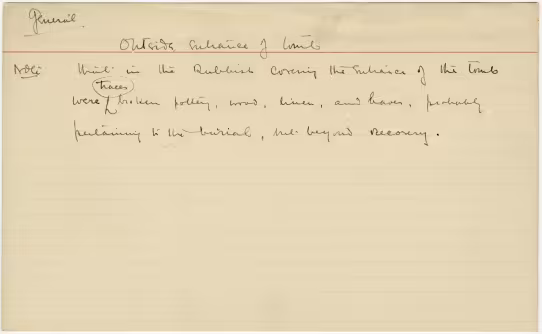 General.
Outside entrance of tomb
Note that in the Rubbish covering the Entrance of the tomb
traces
were broken pottery, wood, linen, and leaves, probably
pertaining to the burial, but beyond recovery.